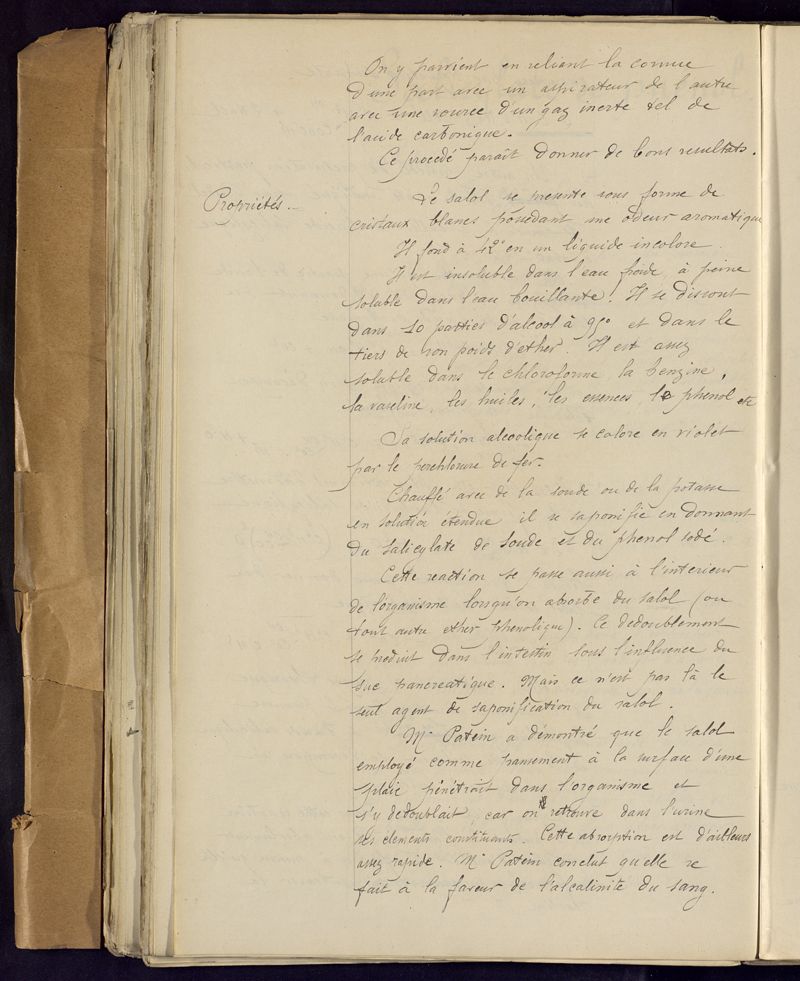 On y parvient en reliant la cornue
d'une part avec un aspirateur de l'autre
avec une source d'un gaz inerte tel de
l'acide carbonique.
Ce procedé paraît donner de bons resultats.
Propriétés._
Le salol se presente sous forme de
cristaux blancs possedant une odeur aromatique
Il fond à 42° en un liquide incolore.
Il est insoluble dans l'eau froide, à peine
soluble dans l'eau bouillante. Il se dissout
dans 10 parties d'alcool à 95° et dans le
tiers de son poids d'ether. Il est assez
soluble dans le chloroforme la benzine,
la vaseline, les huiles, les essences, le phenol etc
Sa solution alcoolique se colore en violet
par le perchlorure de fer.
Chauffé avec de la soude ou de la potasse
en solution étendue il se saponifie en donnant
du salicylate de soude et du phenol sodé.
Cette reaction se passe aussi à l'interieur
de l'organisme lorsqu'on absorbe du salol (ou
tout autre ether phenolique). Ce dedoublement
se produit dans l'intestin sous l'influence du
suc pancreatique. Mais ce n'est pas là le
seul agent de saponification du salol.
Mr Patein a démontré que le salol
employé comme pansement à la surface d'une
plaie pénétrait dans l'organisme et
s'y dedoublait, car on retrouve dans l'urine
ses elements constituants. Cette absorption est d'ailleurs
assez rapide. Mr Patein conclut qu'elle se
fait à la faveur de l'alcalinité du sang.